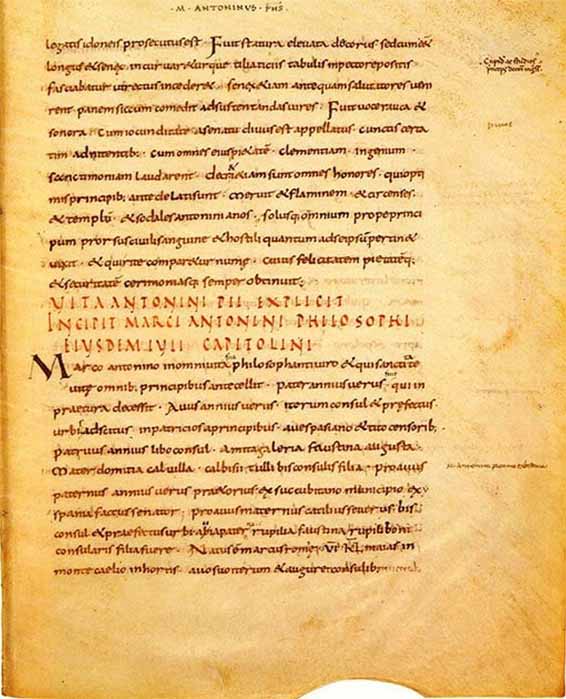 · M · ANTONINUS · PHS ·
legatis idoneis prosecutus est Fuit statura elevata decorus sed cum eet
longus & senex incurvaretur que tiliaciis tabulis in pectore positis
fasciabatur ut rectus incederet · senex etiam antequam salutatores veni
rent panem siccum comedit ad sustentandas vires · Fuit voce rauca &
sonora Cum iocunditate a senatu divus est appellatus cunctis certa
tim adnitentib; Cum omnes eius pietatē · clementiam · ingenium ·
sanctimoniam laudarent · decreta etiam sunt omnes honores · qui opti
mis principib; ante delati sunt · Meruit & flaminem · & circenses ·
& templū · & sodales antoninianos · solusq; omnium prope princi
pum prorsus civili sanguine & hostili quantum ad se ipsū pertinet
vixit · & qui rite comparetur numę · cuius felicitatem pietatēq;
& securitatē cerimoniasq; semper obtinuit ·
VITA ANTONINI PII EXPLICIT
INCIPIT MARCI ANTONINI PHILOSOPHI
EIUSDEM IULI CAPITOLINI
Marco antonino in omni vita philosophanti viro & qui sanctitate
vitę omnib; principibus antecellit · pater annius verus · qui in
praetura decessit · Avus annius verus · iterum consul & prefectus
urbi adscitus in patricios a principibus · a vespasiano & tito censorib;
Patruus annius libo consul · Amita galeria faustina augusta
Mater domitia calvilla · calbisii tulli bis consulis filia · proavus
paternus annius verus praetorius ex succubitano municipio ex
yspania factus senator · proavus maternus catilius severus · bis
consul & praefectus urbi avia paterna rupilia faustina rupili boni
consularis filia fuere · Natus ē marcus romę VI KL maias in
monte caelio in hortis · avo suo iterum & augure consulib;